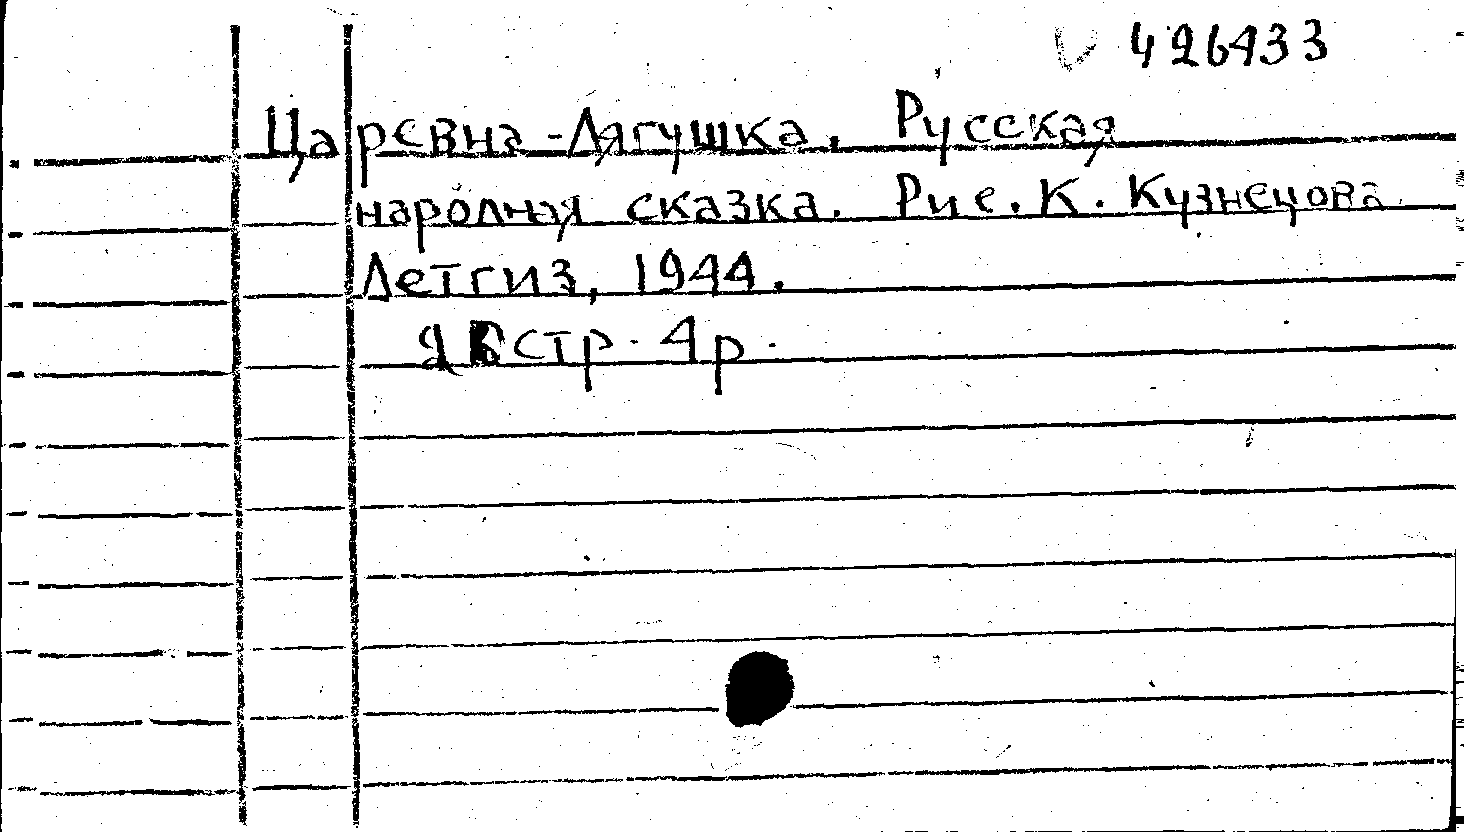 426433
Царевна-Лягушка. Русская
народная сказка. Рис. К. Кузнецова
Детгиз, 1944.
стр. 4р.